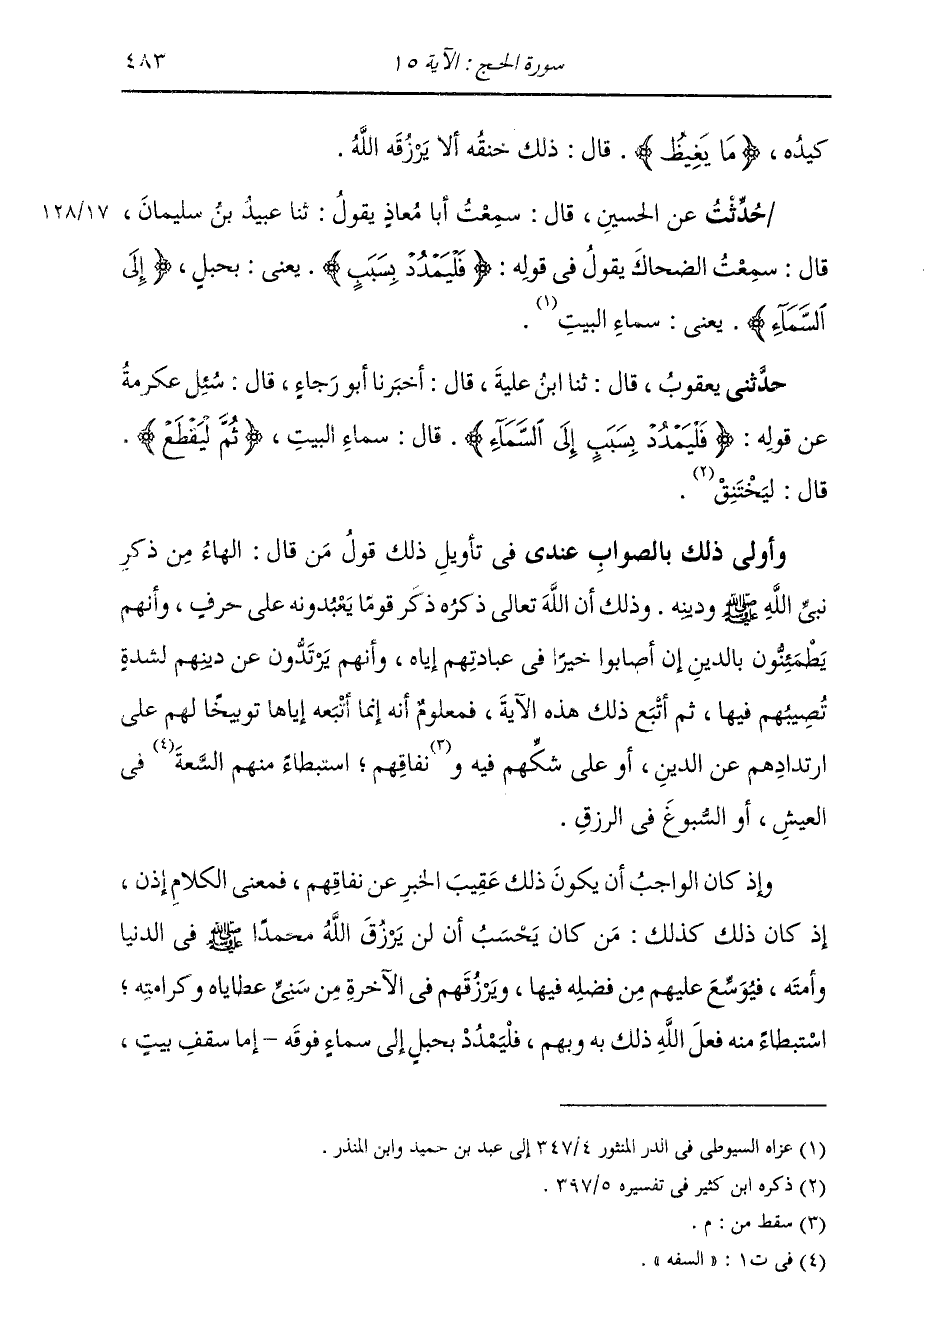 سورة الحج : الآية ١٥ ٤٨٣
كيدُه ، ﴿ مَا يَغِيظُ ﴾ . قال : ذلك خنقُه ألا يَرْزُقَه اللَّهُ .
/حُدِّثْتُ عن الحسينِ ، قال : سمِعْتُ أبا معاذٍ يقولُ : ثنا عبيدُ بنُ سليمانَ ، ١٢٨/١٧
قال : سمِعْتُ الضحاكَ يقولُ فى قولِه : ﴿ فَلْيَمْدُدْ بِسَبَبٍ ﴾ . يعنى : بحبلٍ ، ﴿ إِلَى
ٱلسَّمَآءِ ﴾ . يعنى : سماءِ البيتِ(١) .
حدَّثنى يعقوبُ ، قال : ثنا ابنُ عليةَ ، قال : أخبَرنا أبو رَجاءٍ ، قال : سُئِل عكرمةُ
عن قولِه : ﴿ فَلْيَمْدُدْ بِسَبَبٍ إِلَى ٱلسَّمَآءِ ﴾ . قال : سماءِ البيتِ ، ﴿ ثُمَّ لْيَقْطَعْ ﴾ .
قال : ليَخْتَنِقْ(٢) .
وأولى ذلك بالصوابِ عندى فى تأويلِ ذلك قولُ مَن قال : الهاءُ مِن ذكرِ
نبىِّ اللَّهِ ﷺ ودينِه . وذلك أن اللَّهَ تعالى ذكرُه ذكَر قومًا يَعْبُدونه على حرفٍ ، وأنهم
يَطْمَئِنُّون بالدينِ إن أصابوا خيرًا فى عبادتِهم إياه ، وأنهم يَرْتَدُّون عن دينِهم لشدةٍ
تُصِيبُهم فيها ، ثم أتْبَع ذلك هذه الآيةَ ، فمعلومٌ أنه إنما أتْبَعه إياها توبيخًا لهم على
ارتدادِهم عن الدينِ ، أو على شكِّهم فيه و(٣) نفاقِهم ؛ استبطاءً منهم السَّعةَ(٤) فى
العيشِ ، أو السُّبوغَ فى الرزقِ .
وإذ كان الواجبُ أن يكونَ ذلك عَقِيبَ الخبرِ عن نفاقِهم ، فمعنى الكلامِ إذن ،
إذ كان ذلك كذلك : مَن كان يَحْسَبُ أن لن يَرْزُقَ اللَّهُ محمدًا ﷺ فى الدنيا
وأمتَه ، فيُوَسِّعَ عليهم مِن فضلِه فيها ، ويَرْزُقَهم فى الآخرةِ مِن سَنِىِّ عطاياه وكرامتِه ؛
اسْتبطاءً منه فعلَ اللَّهِ ذلك به وبهم ، فلْيَمْدُدْ بحبلٍ إلى سماءٍ فوقَه – إما سقفِ بيتٍ ،
(١) عزاه السيوطى فى الدر المنثور ٣٤٧/٤ إلى عبد بن حميد وابن المنذر .
(٢) ذكره ابن كثير فى تفسيره ٣٩٧/٥ .
(٣) سقط من : م .
(٤) فى ت١ : « السفه » .